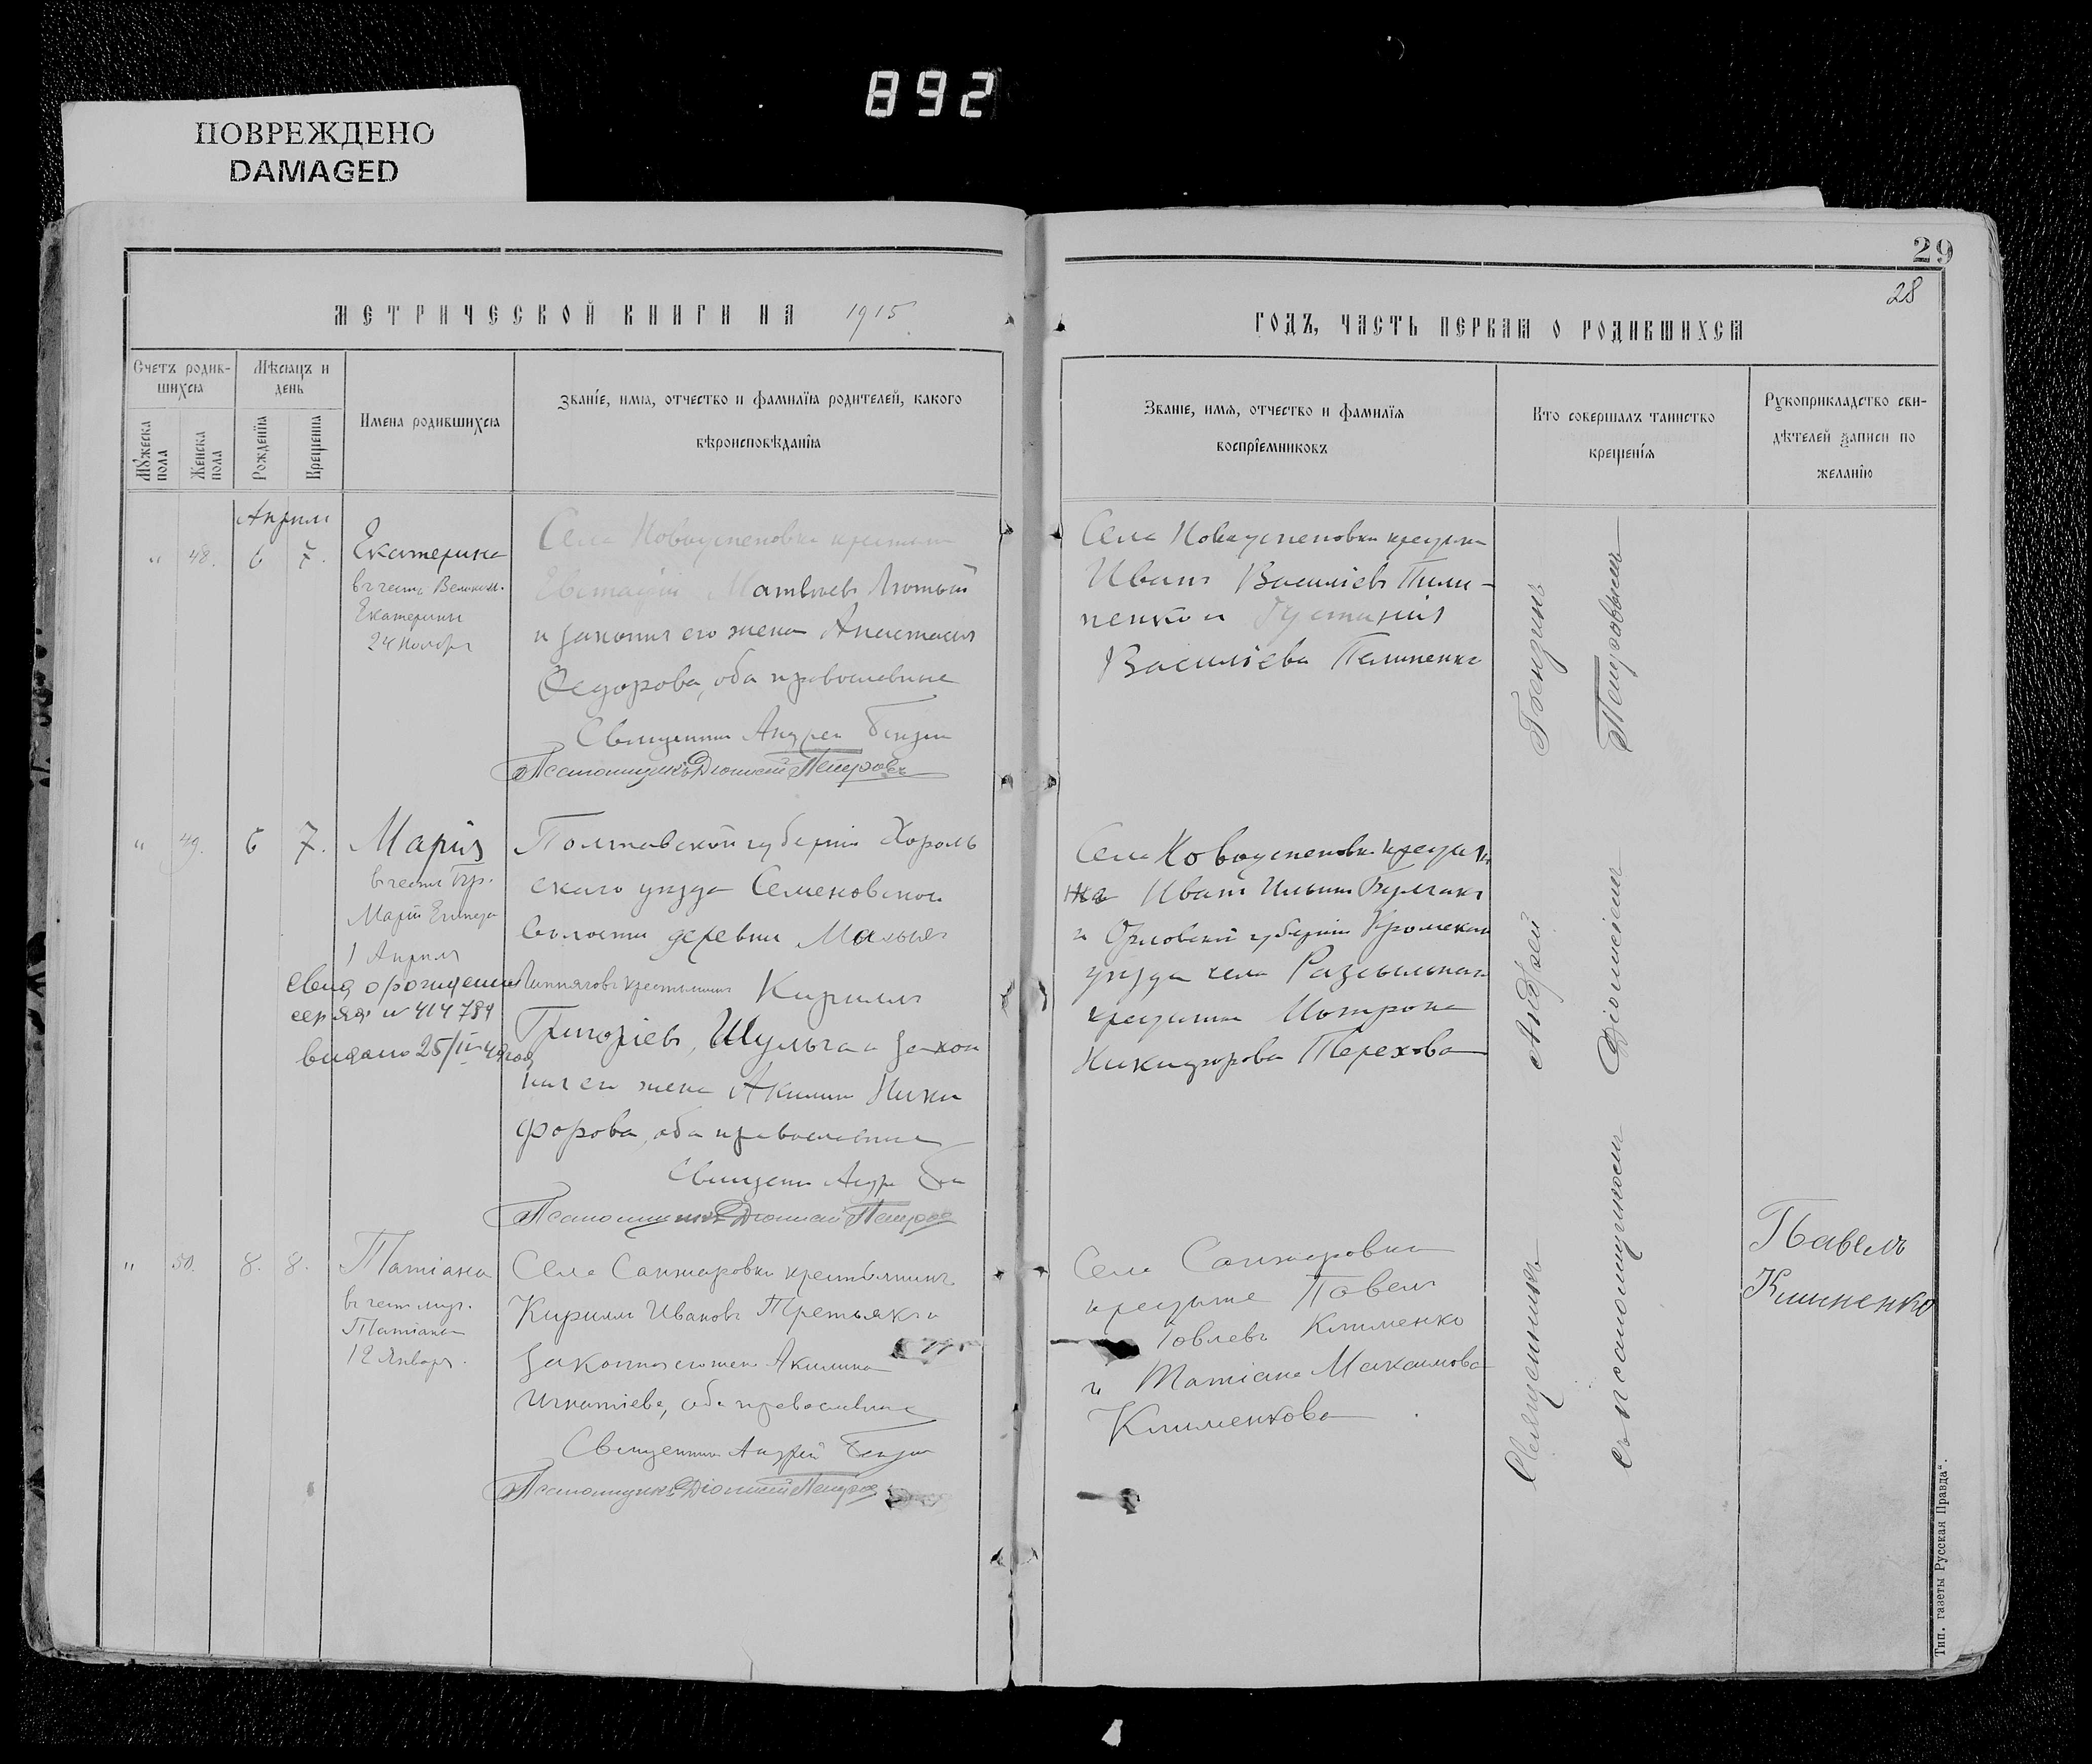 892
ПОВРЕЖДЕНО
DAMAGED
29
28
МЕТРИЧЕСКОЙ КНИГИ НА 1915
ГОДЪ, ЧАСТЬ ПЕРВАЯ О РОДИВШИХСЯ
Счетъ родив-
шихся
Мѣсяцъ и
день
Мужеска
пола
Женска
пола
Рожденїя
Крещенїя
Имена родившихся
Званїе, имя, отчество и фамилїя родителей, какого
вѣроисповѣданїя
Званїе, имя, отчество и фамилїя
воспрїемниковъ
Кто совершалъ таинство
крещенїя
Рукоприкладство сви-
дѣтелей записи по
желанїю
Апрель
" 48. 6 7.
Екатерина
въ честь Великом.
Екатерины
24 ноября
Села Новоуспеновки крестьян
Матвѣевъ Лютый
и законная его жена Анастасия
Федорова, оба православные
Священник Андрей
Псаломщикъ Діонисій Петровъ
Села Новоуспеновки крестьян
Иванъ Васильевъ Пили-
пенко и Устинія
Васильева
" 49. 6 7.
Марія
в честь Пр.
Маріи Египед
1 Апреля
свид о рождении
серия № 414784
выдано 25/IV 49 года
Полтавской губерніи Хороль
скаго уѣзда Семеновской
волости деревни Малыя
Липняговъ крестьянин Кириллъ
Григоріевъ Шульга и закон
ная его жена Акилина Ники
форова, оба православные
Священн Андр
Псаломщикъ Діонисій Петров
Села Новоуспеновки крестьян
Иванъ Ильинъ
и Орловской губерніи Кромскаго
уѣзда села
крестьянка
Никифорова Терехова
" 50. 8. 8.
Татіана
въ честь муч.
Татіаны
12 Января.
Села Санжаровки крестьянинъ
Кириллъ Ивановъ Третьякъ и
законная его жена Акилина
Игнатіева, оба православные
Священник Андрей
Псаломщикъ Діонисій Петров
Села Санжаровки
крестьяне Павелъ
Клименко
и Татіана Максимова
Клименкова
Священникъ Андрей
съ псаломщикомъ Діонисіем Петровымъ
Павелъ
Клименко
Тип. газеты Русская Правда".